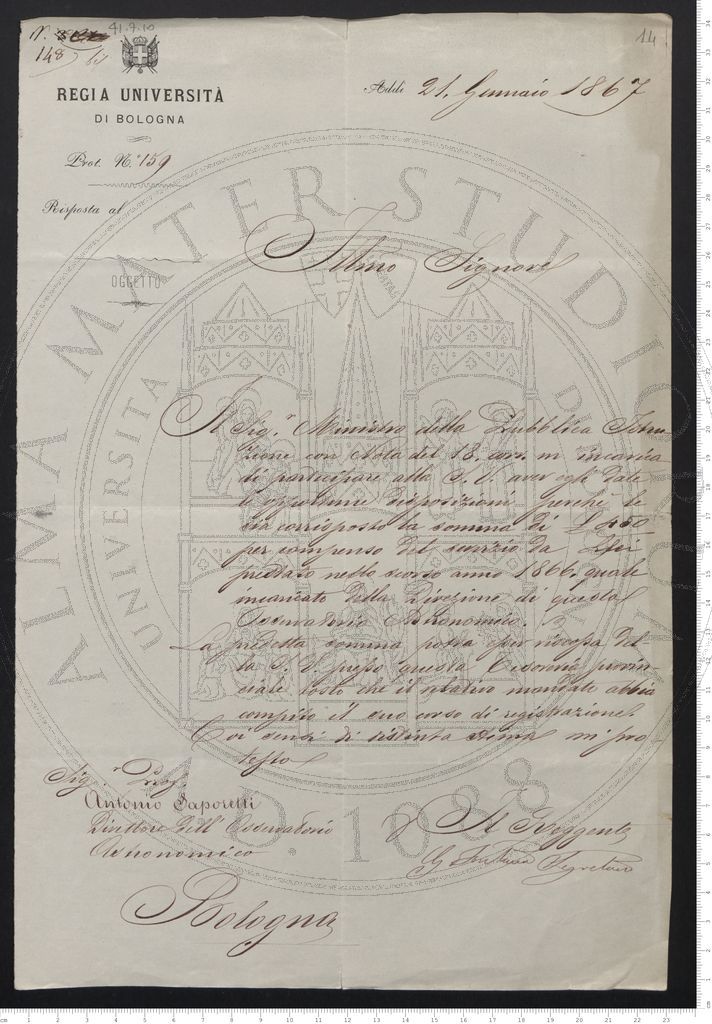 41.7.10
N.
148 bis
14
REGIA UNIVERSITÀ
DI BOLOGNA
Addì 21. Gennaio 1867
Prot. N.° 159
Risposta al
OGGETTO
Illmo Signore
Il Sig.r Ministro della Pubblica Istru
zione con Nota del 18. and. m'incarica
di partecipare alla S. V. aver egli date
le opportune disposizioni perché le
sia corrisposta la somma di
per compenso del servizio da Lei
prestato nello scorso anno 1866. quale
incaricato della Direzione di questo
Osservatorio Astronomico.
La predetta somma potrà esser riscossa del
la S. V. presso questa Tesoreria provin
ciale tosto che il relativo mandato abbia
compito il suo corso di registrazione.
Coi sensi di distinta stima mi pro
testo
Sig.r Prof.
Antonio Saporetti
Direttore dell'Osservatorio
Astronomico
Bologna
Il Reggente
Segretario
ALMA MATER STUDIORUM
UNIVERSITÀ DI BOLOGNA
A.D. 1088